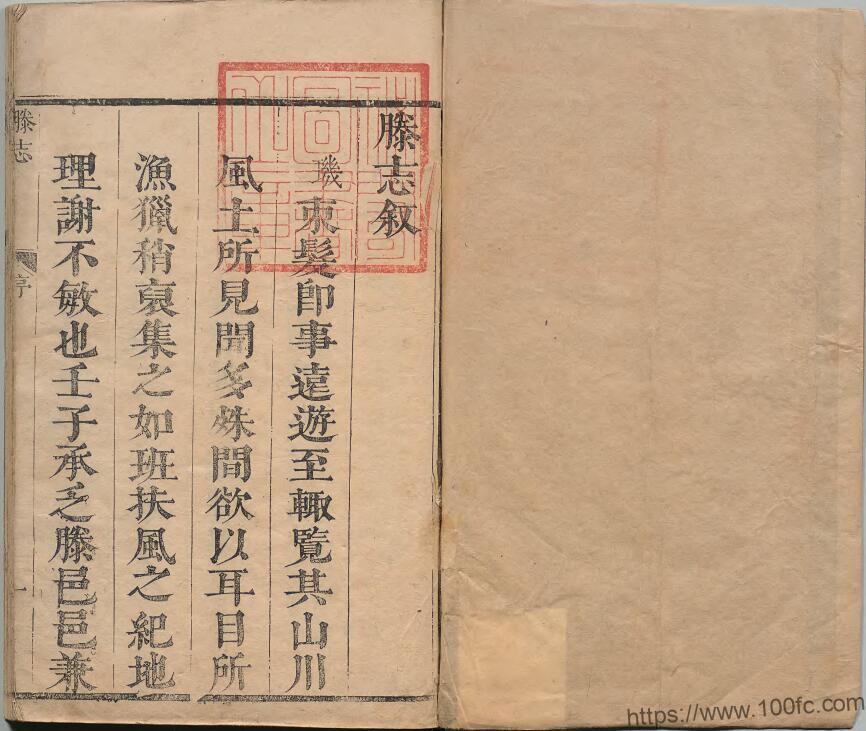 滕志叙
璣束髮即事遠遊至輙覧其山川
風土所見聞多殊間欲以耳目所
漁獵稍裒集之如班扶風之紀地
理謝不敏也壬子承乏滕邑邑兼
滕志
序
一
https://www.100fc.com